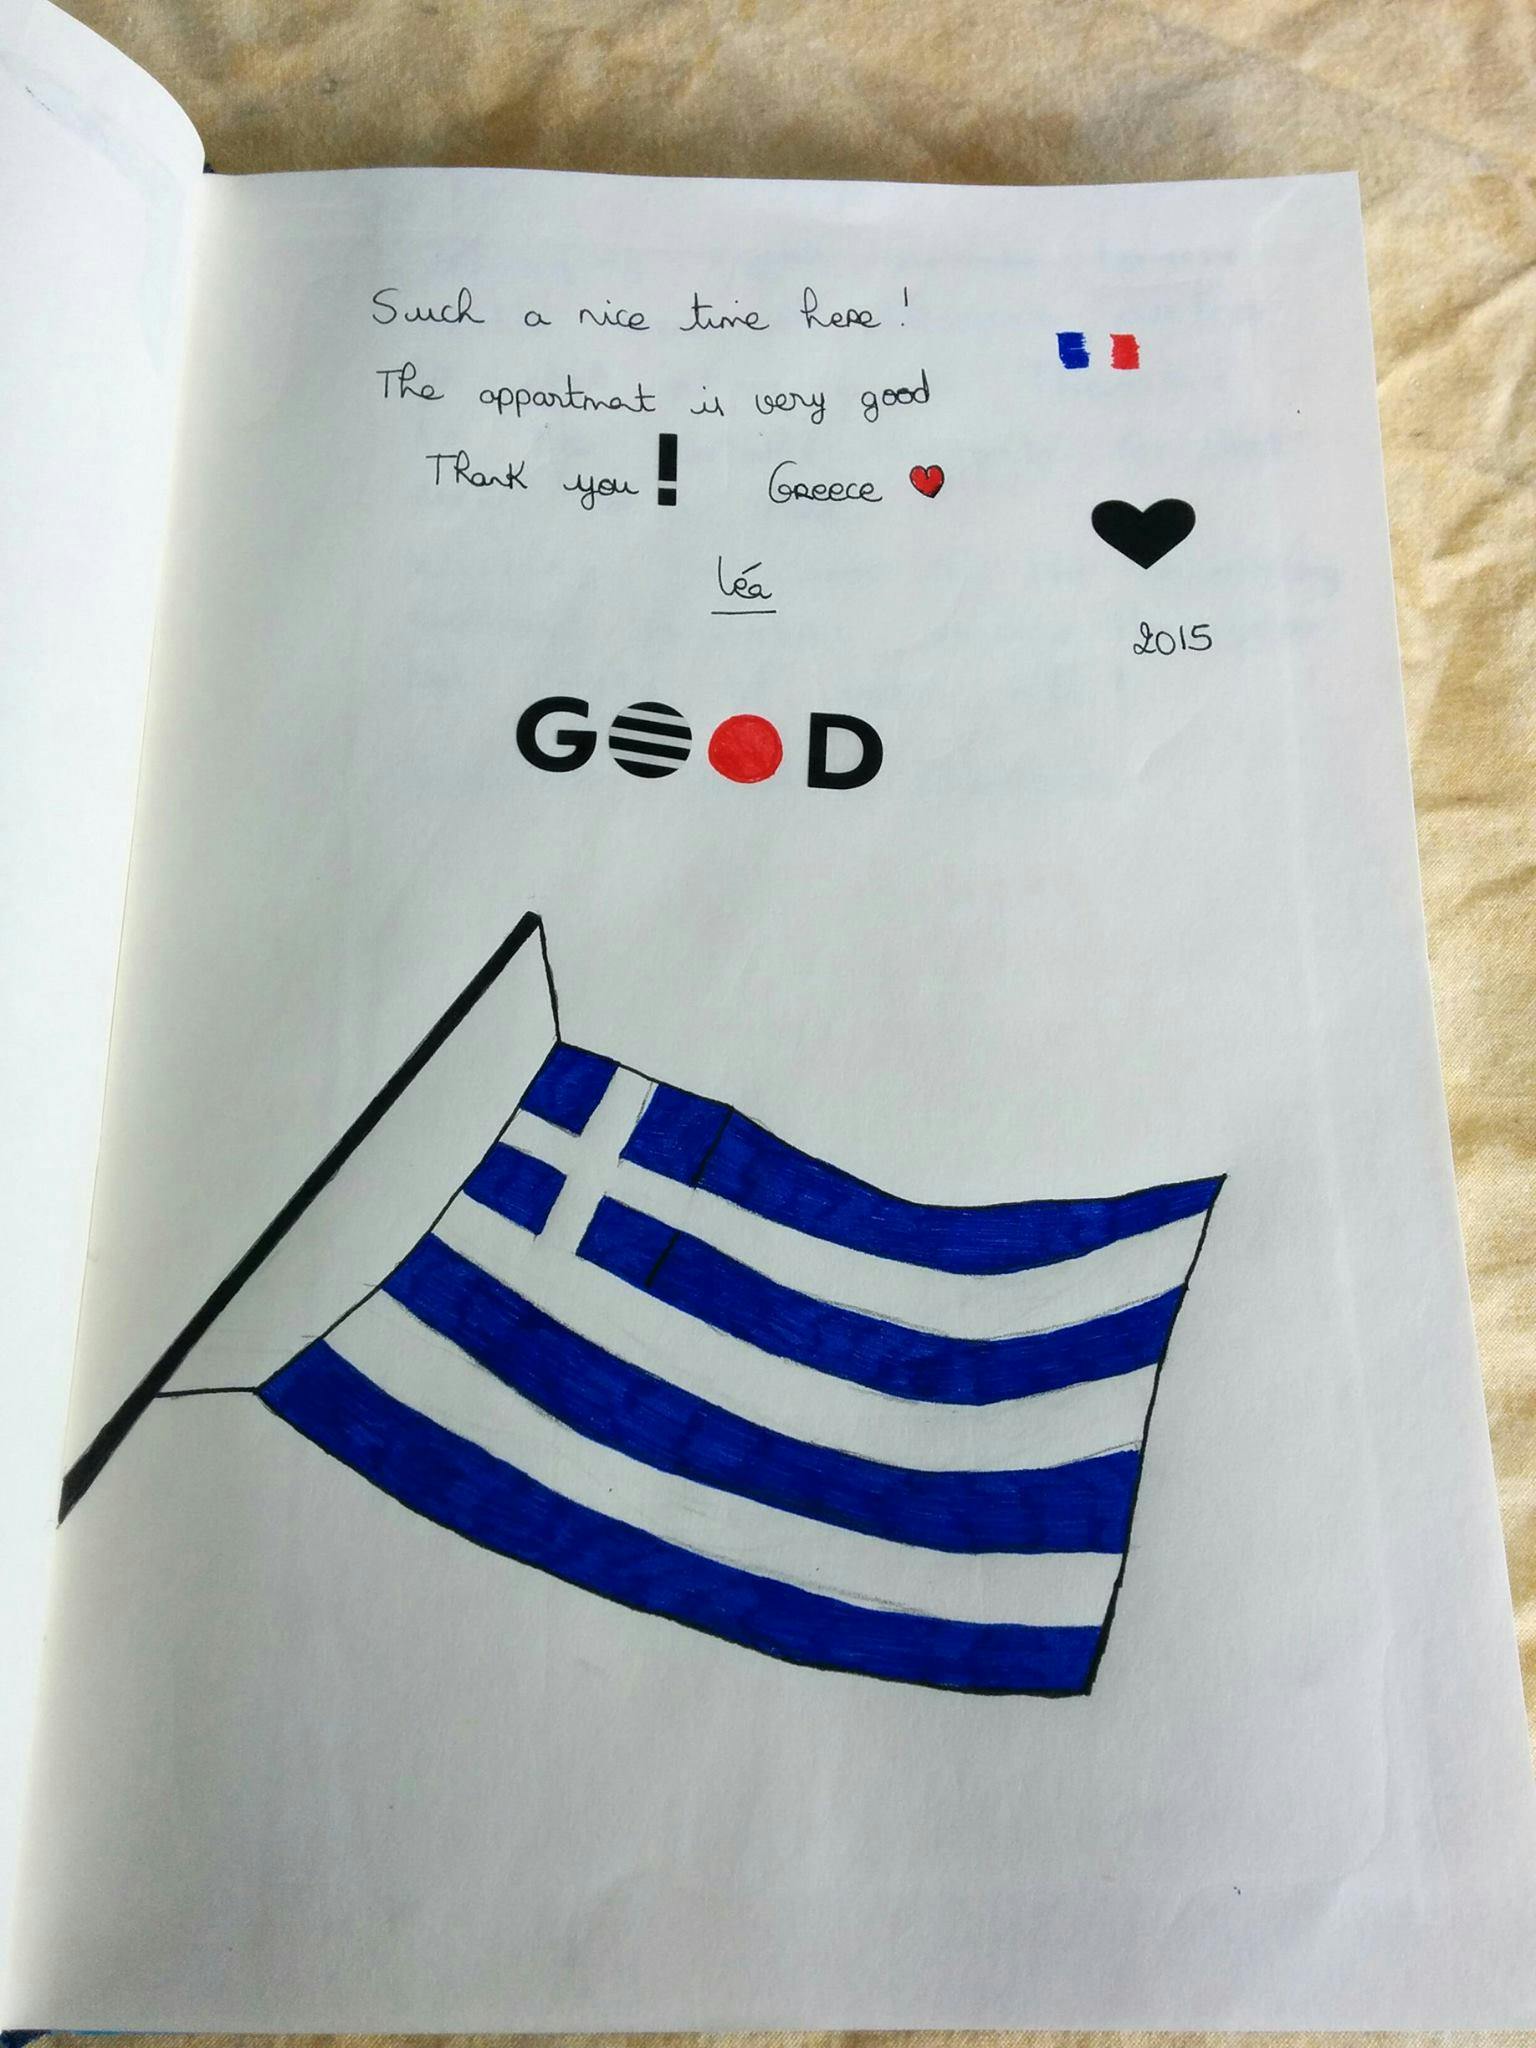 Such a nice time here!
The appartmat is very good
Thank you! Greece
Léa
2015
GOOD